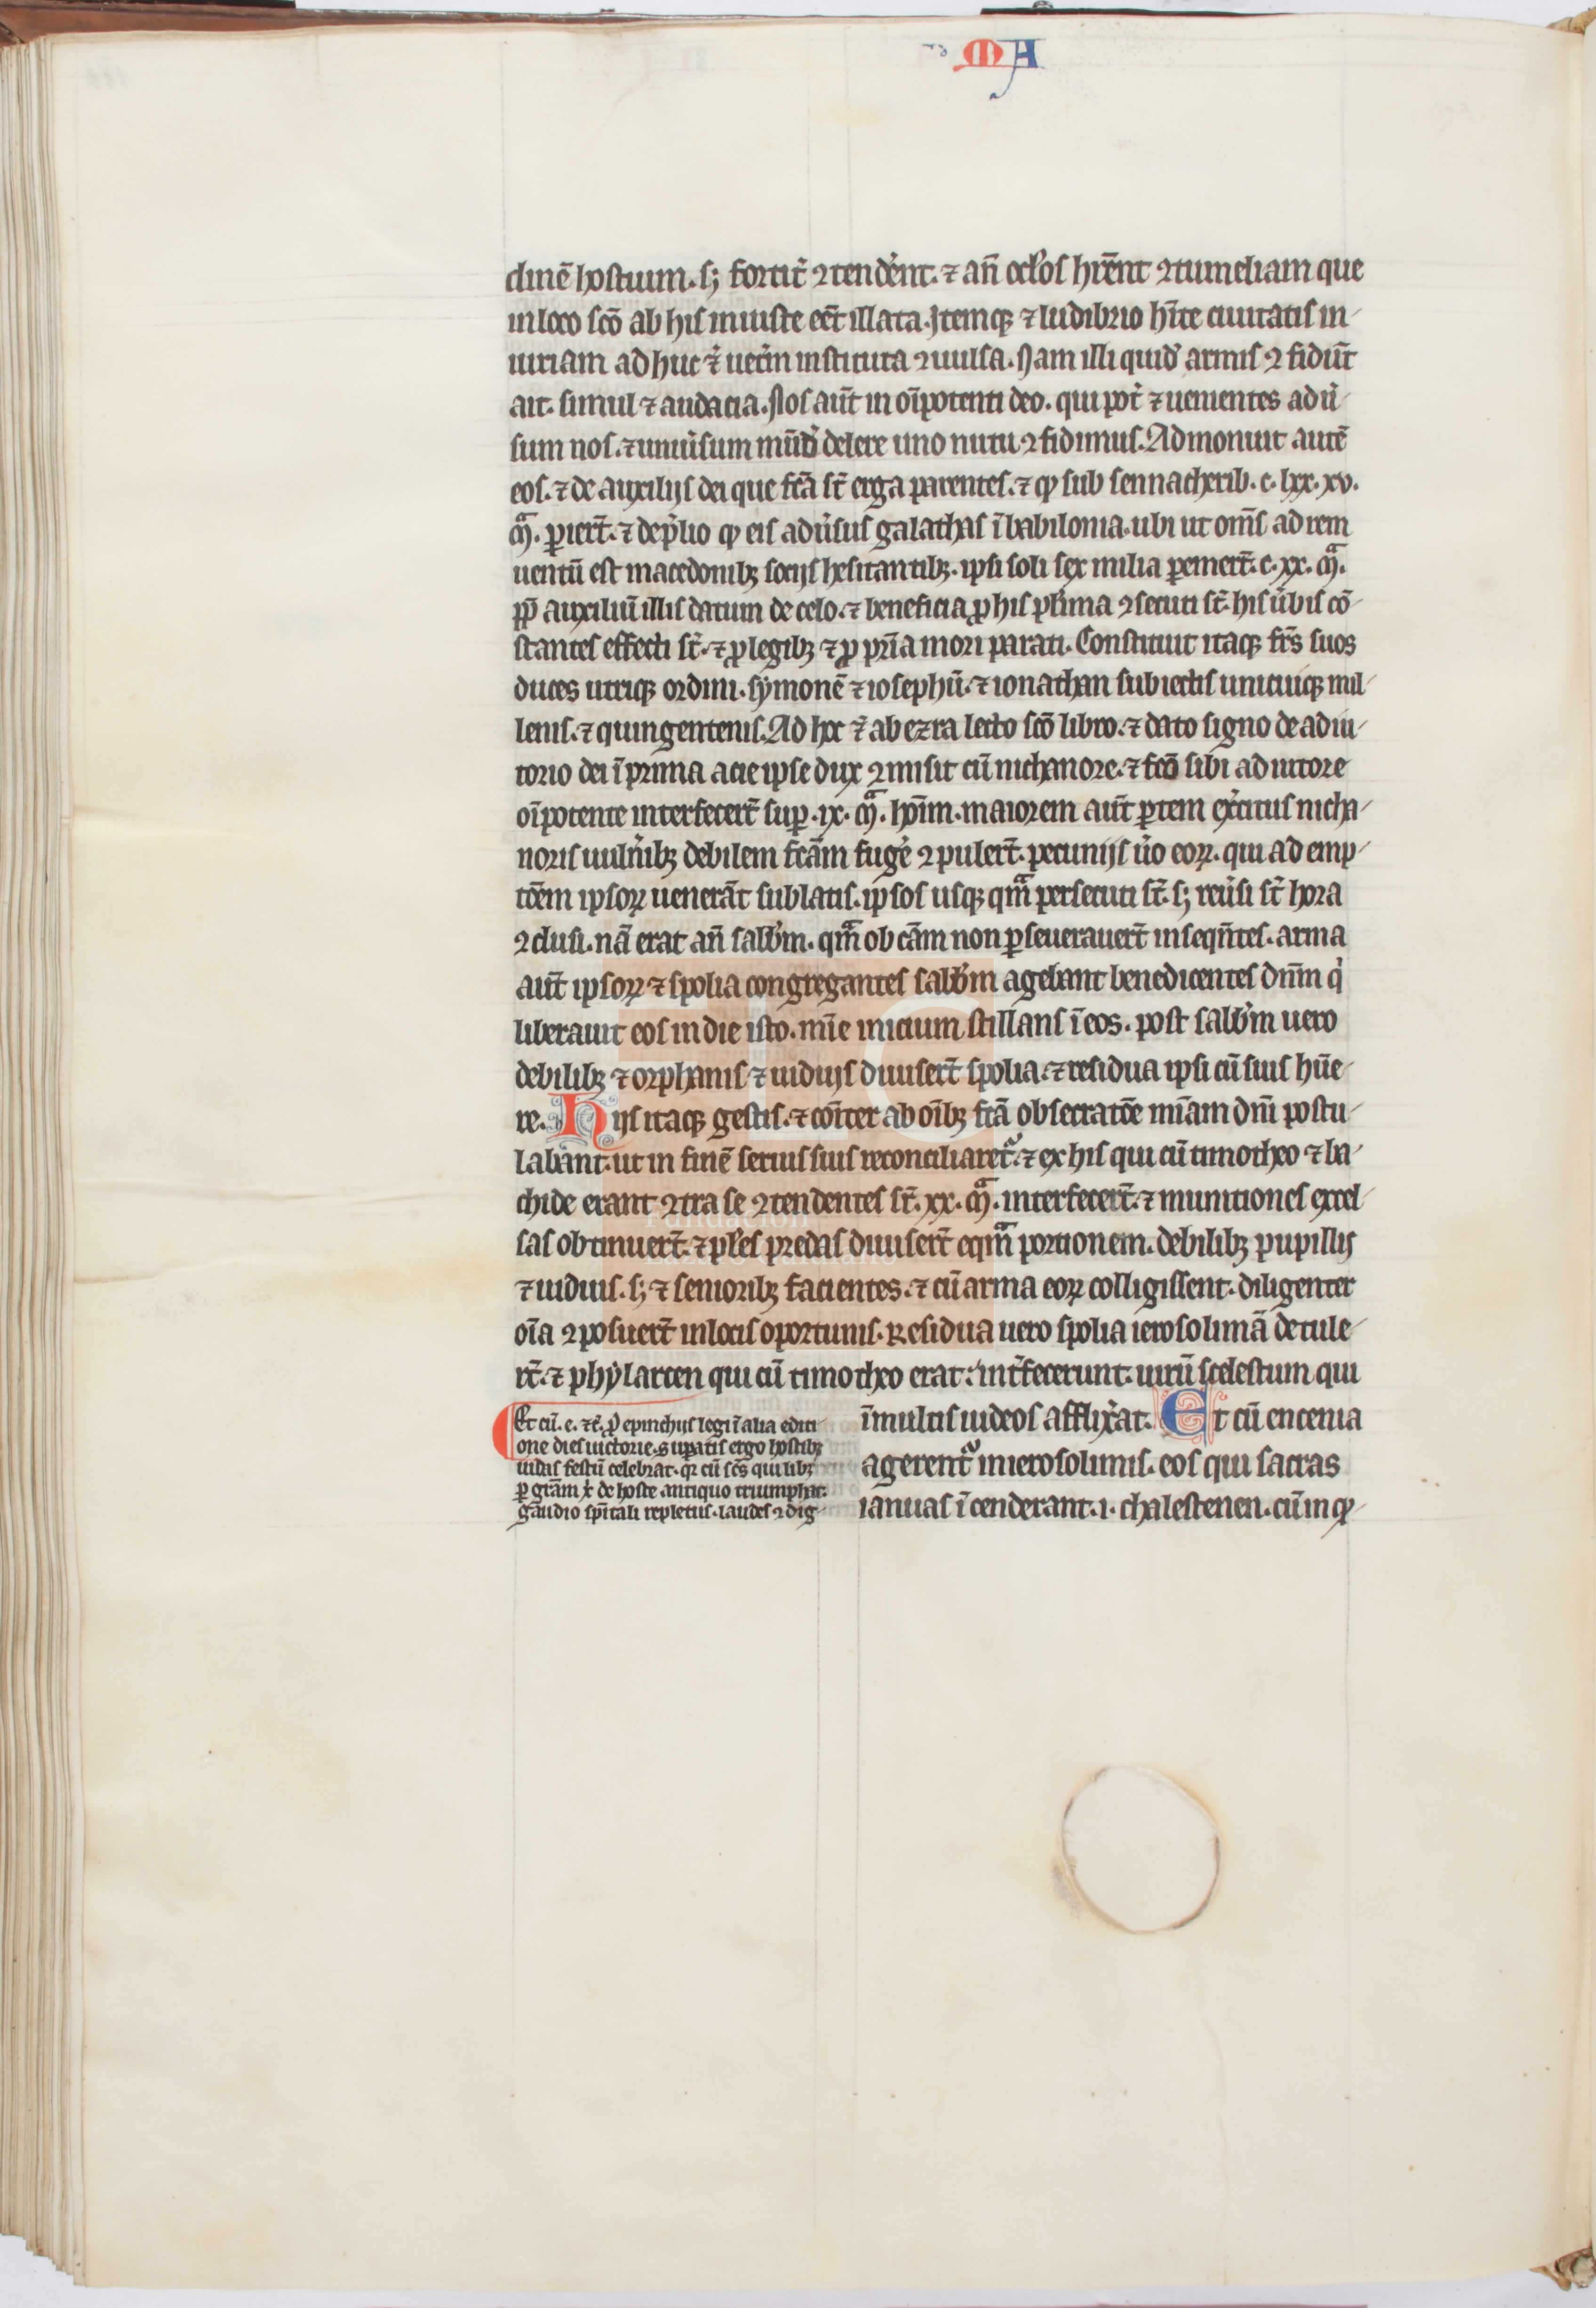 MA
dinē hostium. sꝫ fortit̉ ꝯtendēnt. ⁊ añ ocl̉os hr̄ent ꝯtumeliam que
in loco sc̄o ab his iniuste eēt illata. Itemqꝫ ⁊ ludibrio hīte ciuitatis in-
iuriam adhuc ⁊̄ uet̉m instituta ꝯuulsa. Nam illi quid̉ armis ꝯfidūt
ait. simul ⁊ audacia. Nos aūt in oīpotenti deo. qui pot̉ ⁊ uenientes adu̓-
sum nos. ⁊ uniu̓sum mūd̉ delere uno nutu ꝯfidimus. Admonuit autē
eos. ⁊ de auxilijs dei que fc̄a st̄ erga parentes. ⁊ ꝙ sub sennacherib. c. lxx. xv.
mͣ. ꝑiert̄. ⁊ de p̉lio ꝙ eis adu̓sus galathas ī babilonia. ubi ut om̄s ad rem
uentū est macedonibꝫ socijs hesitantibꝫ. ipsi soli sex milia ꝑemert̄. c. xx. mͣ.
pp̄ auxiliū illis datum de celo. ⁊ beneficia ꝓ his pl̉ima ꝯsecuti st̄. his u̓bis cō-
stantes effecti st̄. ⁊ ꝓ legibꝫ ⁊ ꝓ pr̄ia mori parati. Constituit itaqꝫ fr̄s suos
duces utriqꝫ ordini. sẏmonē ⁊ iosephū. ⁊ ionathan subiectis unicuiqꝫ mil-
lenis. ⁊ quingentenis. Ad hoc ⁊̄ ab ezra lecto sc̄o libro. ⁊ dato signo de adiu-
torio dei ī prima acie ipse dux ꝯmisit cū nichanore. ⁊ fc̄o sibi adiutore
oīpotente interfecert̄ suꝑ. ix. mͣ. hoīm. maiorem aūt ꝑtem ex̉citus nicha-
noris uuln̉ibꝫ debilem fc̄am fuge̓ ꝯpulert̄. pecunijs u̓o eoꝝ. qui ad emp-
tōem ipsoꝝ uenerāt sublatis. ipsos usqꝫ qͣm persecuti st̄. sꝫ reu̓si st̄ hora
ꝯclusi. nā erat añ sabb̉m. qͣm ob cām non ꝑseuerauert̄ inseqn̄tes. arma
aūt ipsoꝝ ⁊ spolia congregantes sabb̉m agebant benedicentes dn̄m q̉
liberauit eos in die isto. mīe inicium stillans ī eos. post sabb̉m uero
debilibꝫ ⁊ orphanis ⁊ uiduijs diuisert̄ spolia. ⁊ residua ipsi cū suis hūe-
re. Hijs itaqꝫ gestis. ⁊ cōiter ab oībꝫ fc̄a obsecratōe mīam dn̄i postu-
labant. ut in finē seruis suis reconciliaret̉. ⁊ ex his qui cū timotheo ⁊ ba-
chide erant ꝯtra se ꝯtendentes st̄. xx. mͣ. interfecert̄. ⁊ munitiones excel-
sas obtinuert̄. ⁊ pl̉es predas diuisert̄ eqͣm portionem. debilibꝫ pupillis
⁊ uiduis. sꝫ ⁊ senioribꝫ facientes. ⁊ cū arma eoꝝ colligissent. diligenter
oīa ꝯposuert̄ in locis oportunis. Residua uero spolia ierosolimā detule-
rt̄. ⁊ phẏlarcen qui cū timotheo erat int̉fecerunt. uirū scelestum qui
ī multis iudeos afflix̉at. Et cū encenia
agerent̉ in ierosolimis. eos qui sacras
ianuas īcenderant. i. chalestenen. cū in ꝙ-
Et cū. e. ⁊c̄. ꝓ epinchijs legi ī alia editi-
one dies uictorie. Suꝑatis ergo hostibꝫ
iudas festū celebrat. qr̉ cū sc̄s quilibꝫ
ꝑ gr̄am x̉ de hoste antiquo triumphat.
gaudio sp̄itali repletus. laudes ꝯdig-